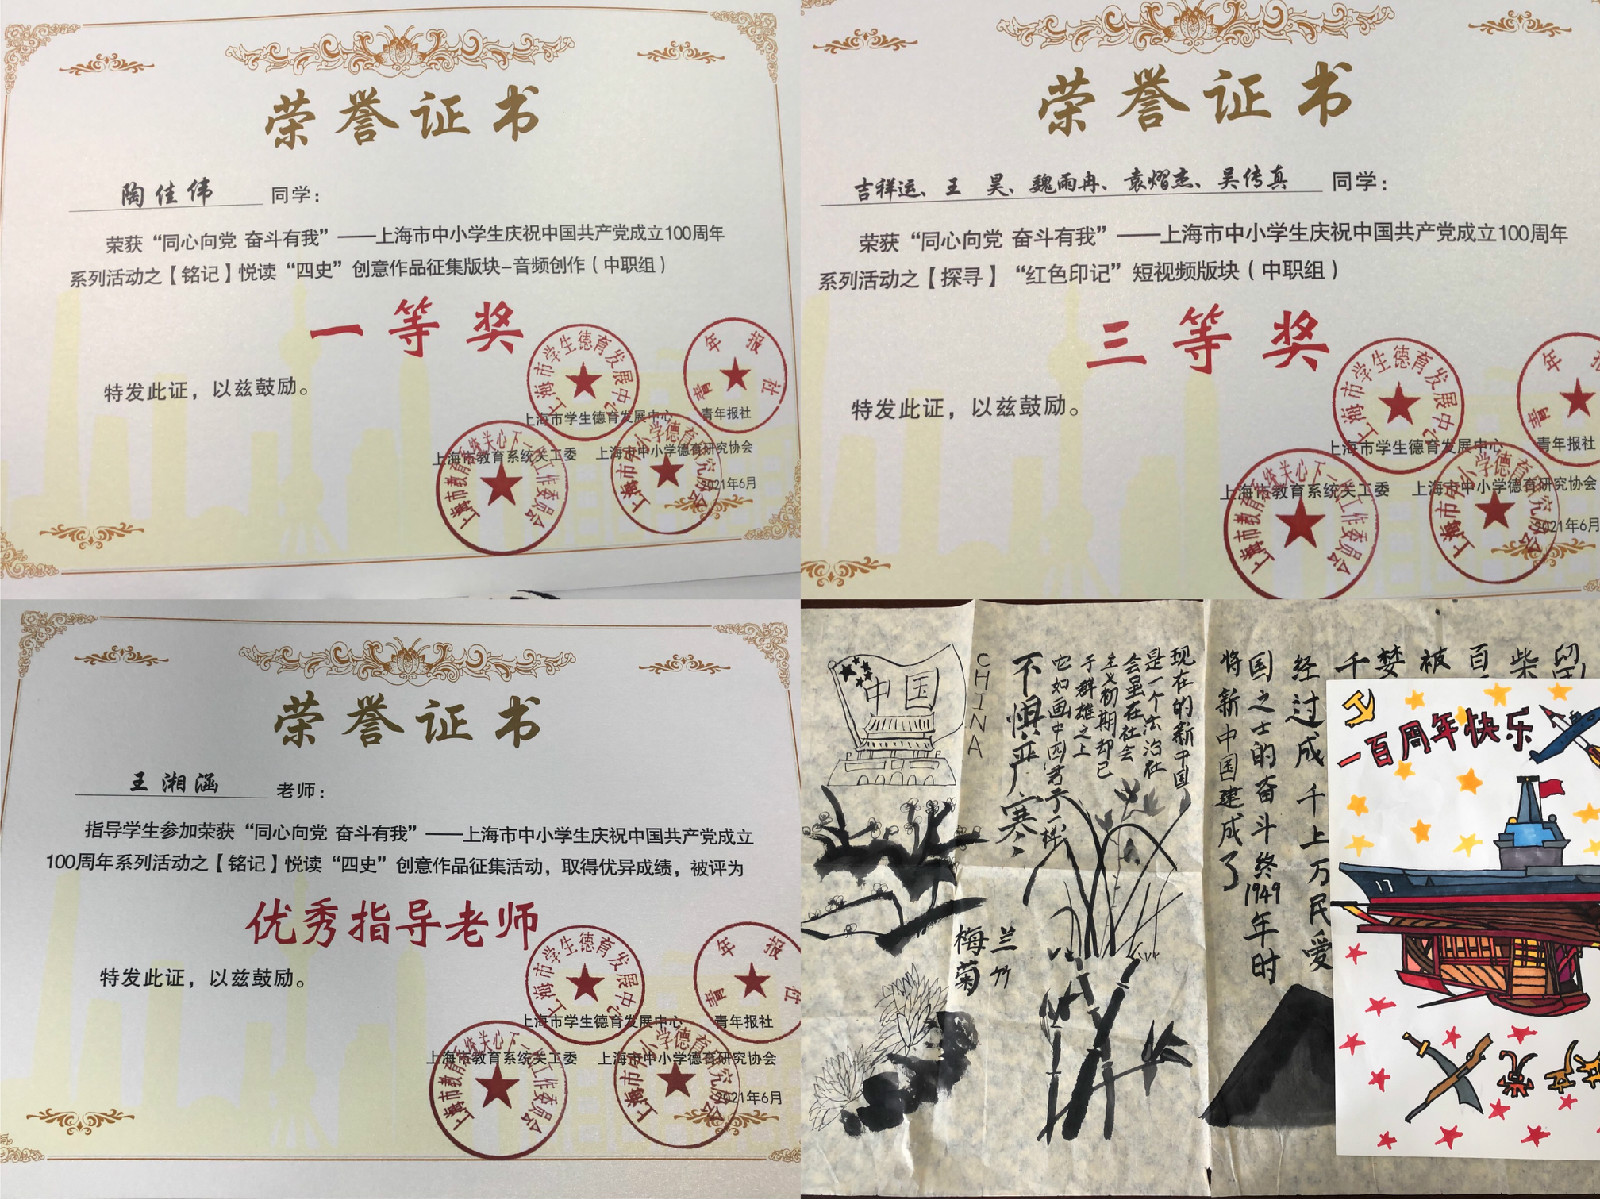 荣誉证书
陶佳伟 同学：
荣获“同心向党 奋斗有我”——上海市中小学生庆祝中国共产党成立100周年
系列活动之【铭记】悦读“四史”创意作品征集版块-音频创作（中职组）
一等奖
特发此证，以兹鼓励。
上海市学生德育发展中心 青年报社
上海市教育系统关工委 上海市中小学德育研究协会
2021年6月
荣誉证书
吉祥运、王昊、魏雨冉、袁熠杰、吴传真 同学：
荣获“同心向党 奋斗有我”——上海市中小学生庆祝中国共产党成立100周年
系列活动之【探寻】“红色印记”短视频版块（中职组）
三等奖
特发此证，以兹鼓励。
上海市学生德育发展中心 青年报社
上海市教育系统关工委 上海市中小学德育研究协会
2021年6月
荣誉证书
王湘涵 老师：
指导学生参加荣获“同心向党 奋斗有我”——上海市中小学生庆祝中国共产党成立
100周年系列活动之【铭记】悦读“四史”创意作品征集活动，取得优异成绩，被评为
优秀指导老师
特发此证，以兹鼓励。
上海市学生德育发展中心 青年报社
上海市教育系统关工委 上海市中小学德育研究协会
2021年6月
中国
CHINA
不惧严寒
现在的新中国
是一个法治社
会虽在社会
主义初期却已
于群雄之上
它如画中四君子一样
梅
菊
兰
竹
经过成千上万民爱
国之士的奋斗终1949年时
将新中国建成了
一百周年快乐
17